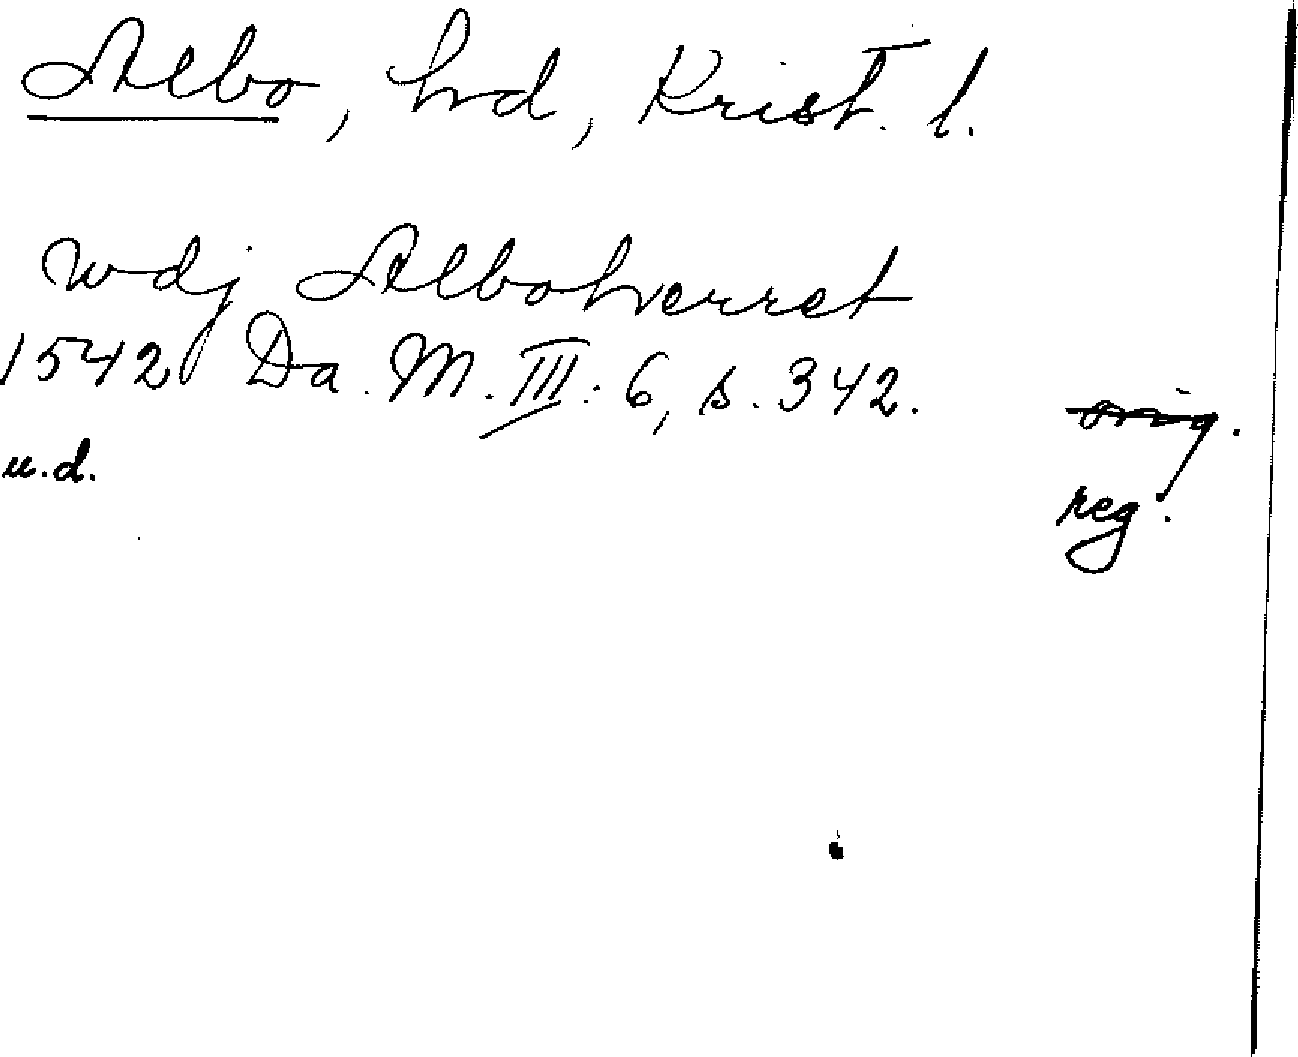 Albo, hd, Krist. l.
wdj Alboherret
1542 Da. M. III: 6, s. 342.
orig.
u.d.
reg.